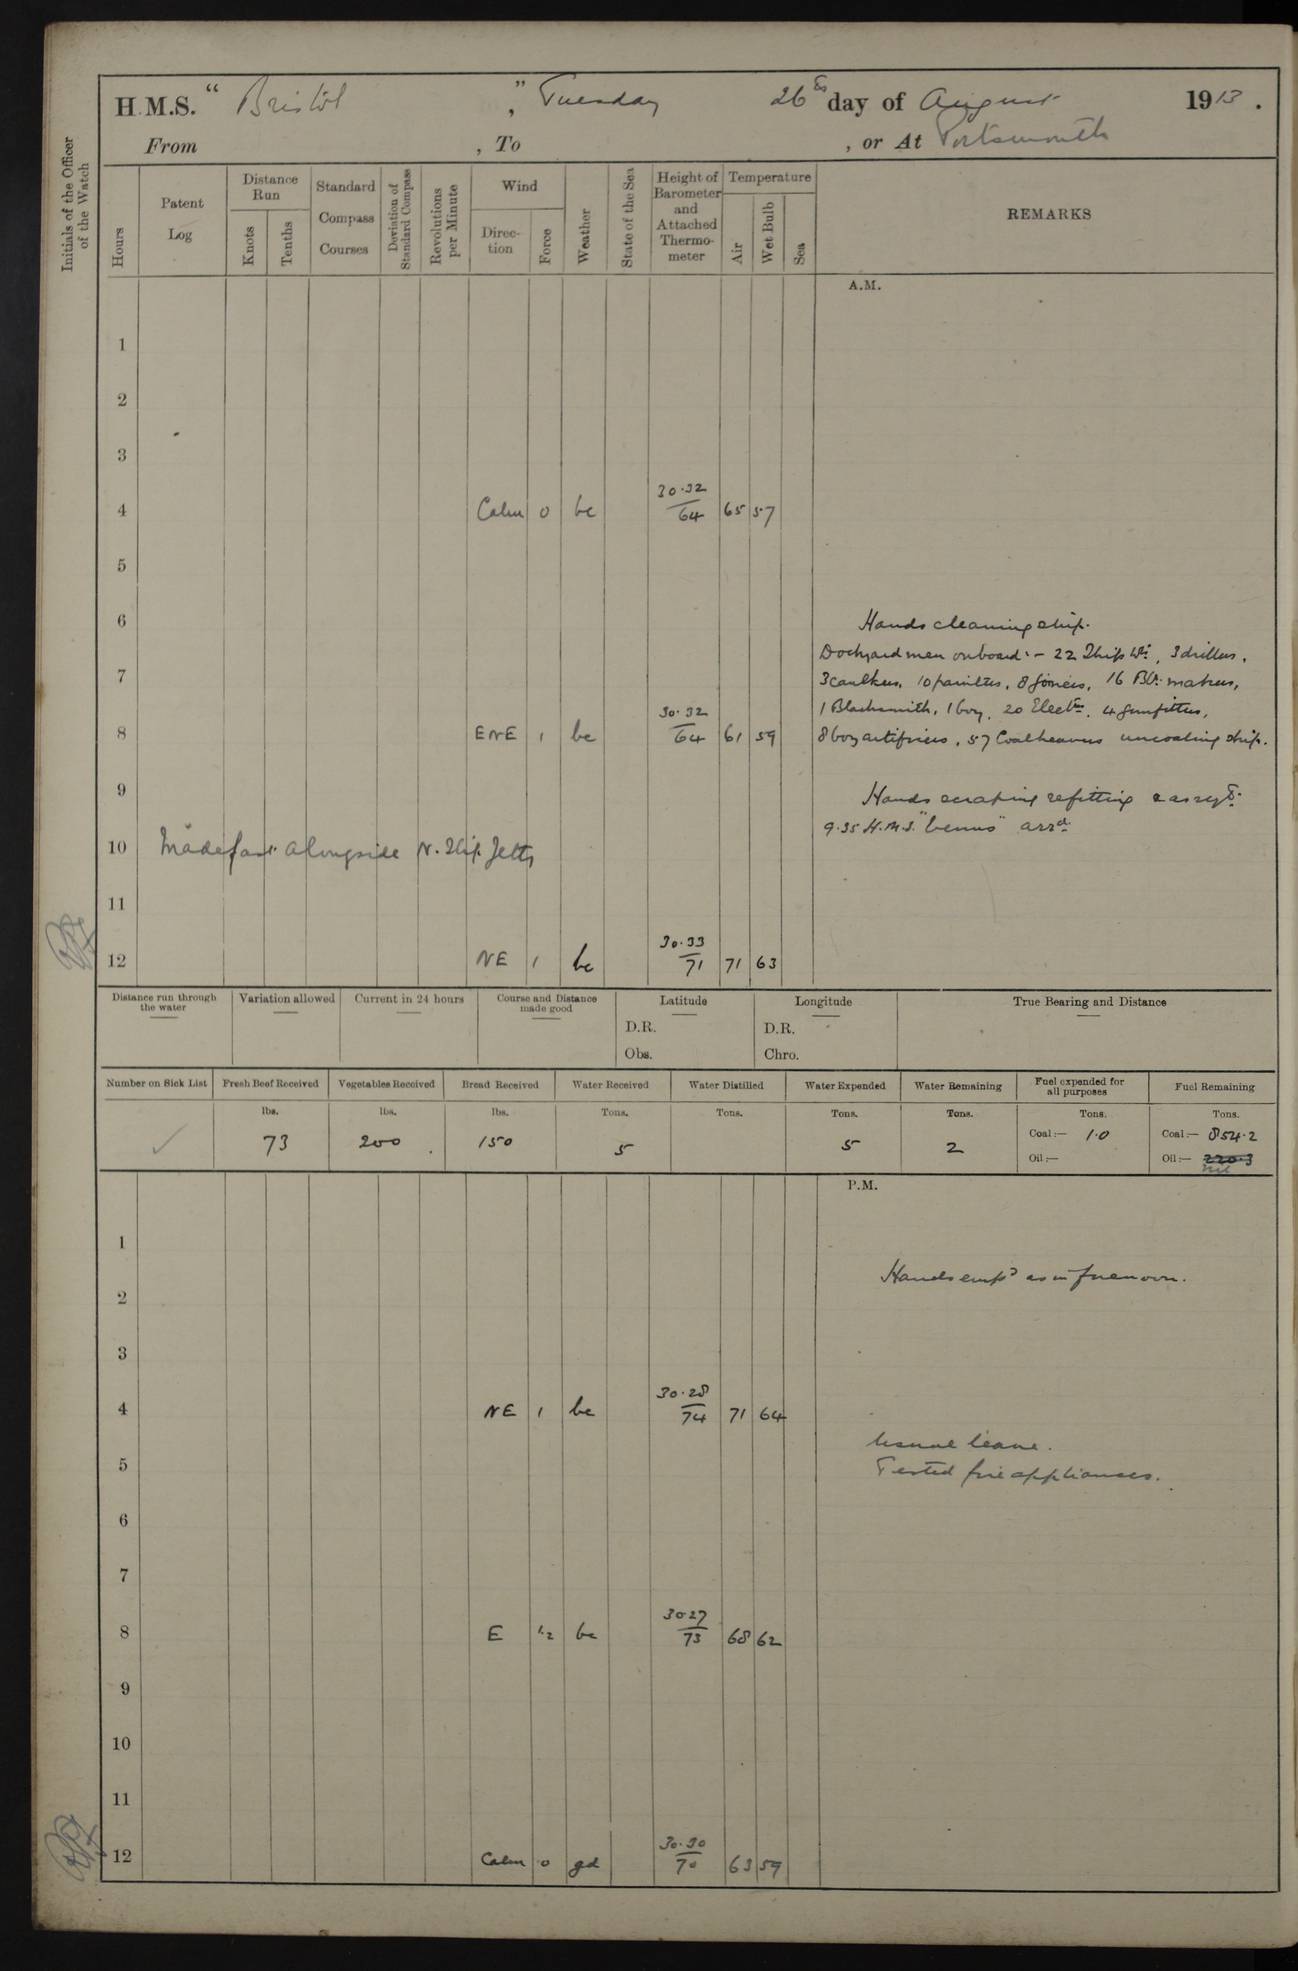 H.M.S. " Bristol ", Tuesday 26th day of August 1913.
From , To , or At Portsmouth
Initials of the Officer of the Watch
Hours
Patent Log
Distance Run
Knots
Tenths
Standard Compass Courses
Deviation of Standard Compass
Revolutions per Minute
Wind
Direc-tion
Force
Weather
State of the Sea
Height of Barometer and Attached Thermo-meter
Temperature
Air
Wet Bulb
Sea
REMARKS
A.M.
1
2
3
4 Calm 0 bc 30.32/64 65 57
5
6 Hands cleaning ship.
Dockyard men onboard:- 22 Ship Wts, 3 drillers,
7 3 caulkers, 10 painters, 8 joiners, 16 Blr. makers,
1 Blacksmith, 1 boy, 20 Elect., 4 gunfitters,
8 ENE 1 bc 30.32/64 61 59 8 boy artificers, 57 Coalheavers uncoaling ship.
9 Hands scraping refitting & as reqd.
9.35 H.M.S. "Venus" arrd.
10 Made fast alongside N. Slip Jetty
11
12 NE 1 bc 30.33/71 71 63
Distance run through the water
Variation allowed
Current in 24 hours
Course and Distance made good
Latitude
D.R.
Obs.
Longitude
D.R.
Chro.
True Bearing and Distance
Number on Sick List
Fresh Beef Received
Vegetables Received
Bread Received
Water Received
Water Distilled
Water Expended
Water Remaining
Fuel expended for all purposes
Fuel Remaining
lbs. lbs. lbs. Tons. Tons. Tons. Tons. Tons. Tons.
✓ 73 200 150 5 5 2 Coal:— 1.0 Coal:— 854.2
Oil:— Oil:— 220.3
nil
P.M.
1
Hands empd as in forenoon.
2
3
4 NE 1 bc 30.28/74 71 64
Usual leave.
5 Tested fire appliances.
6
7
8 E 1.2 bc 30.27/73 68 62
9
10
11
12 Calm 0 gd 30.30/70 63 59